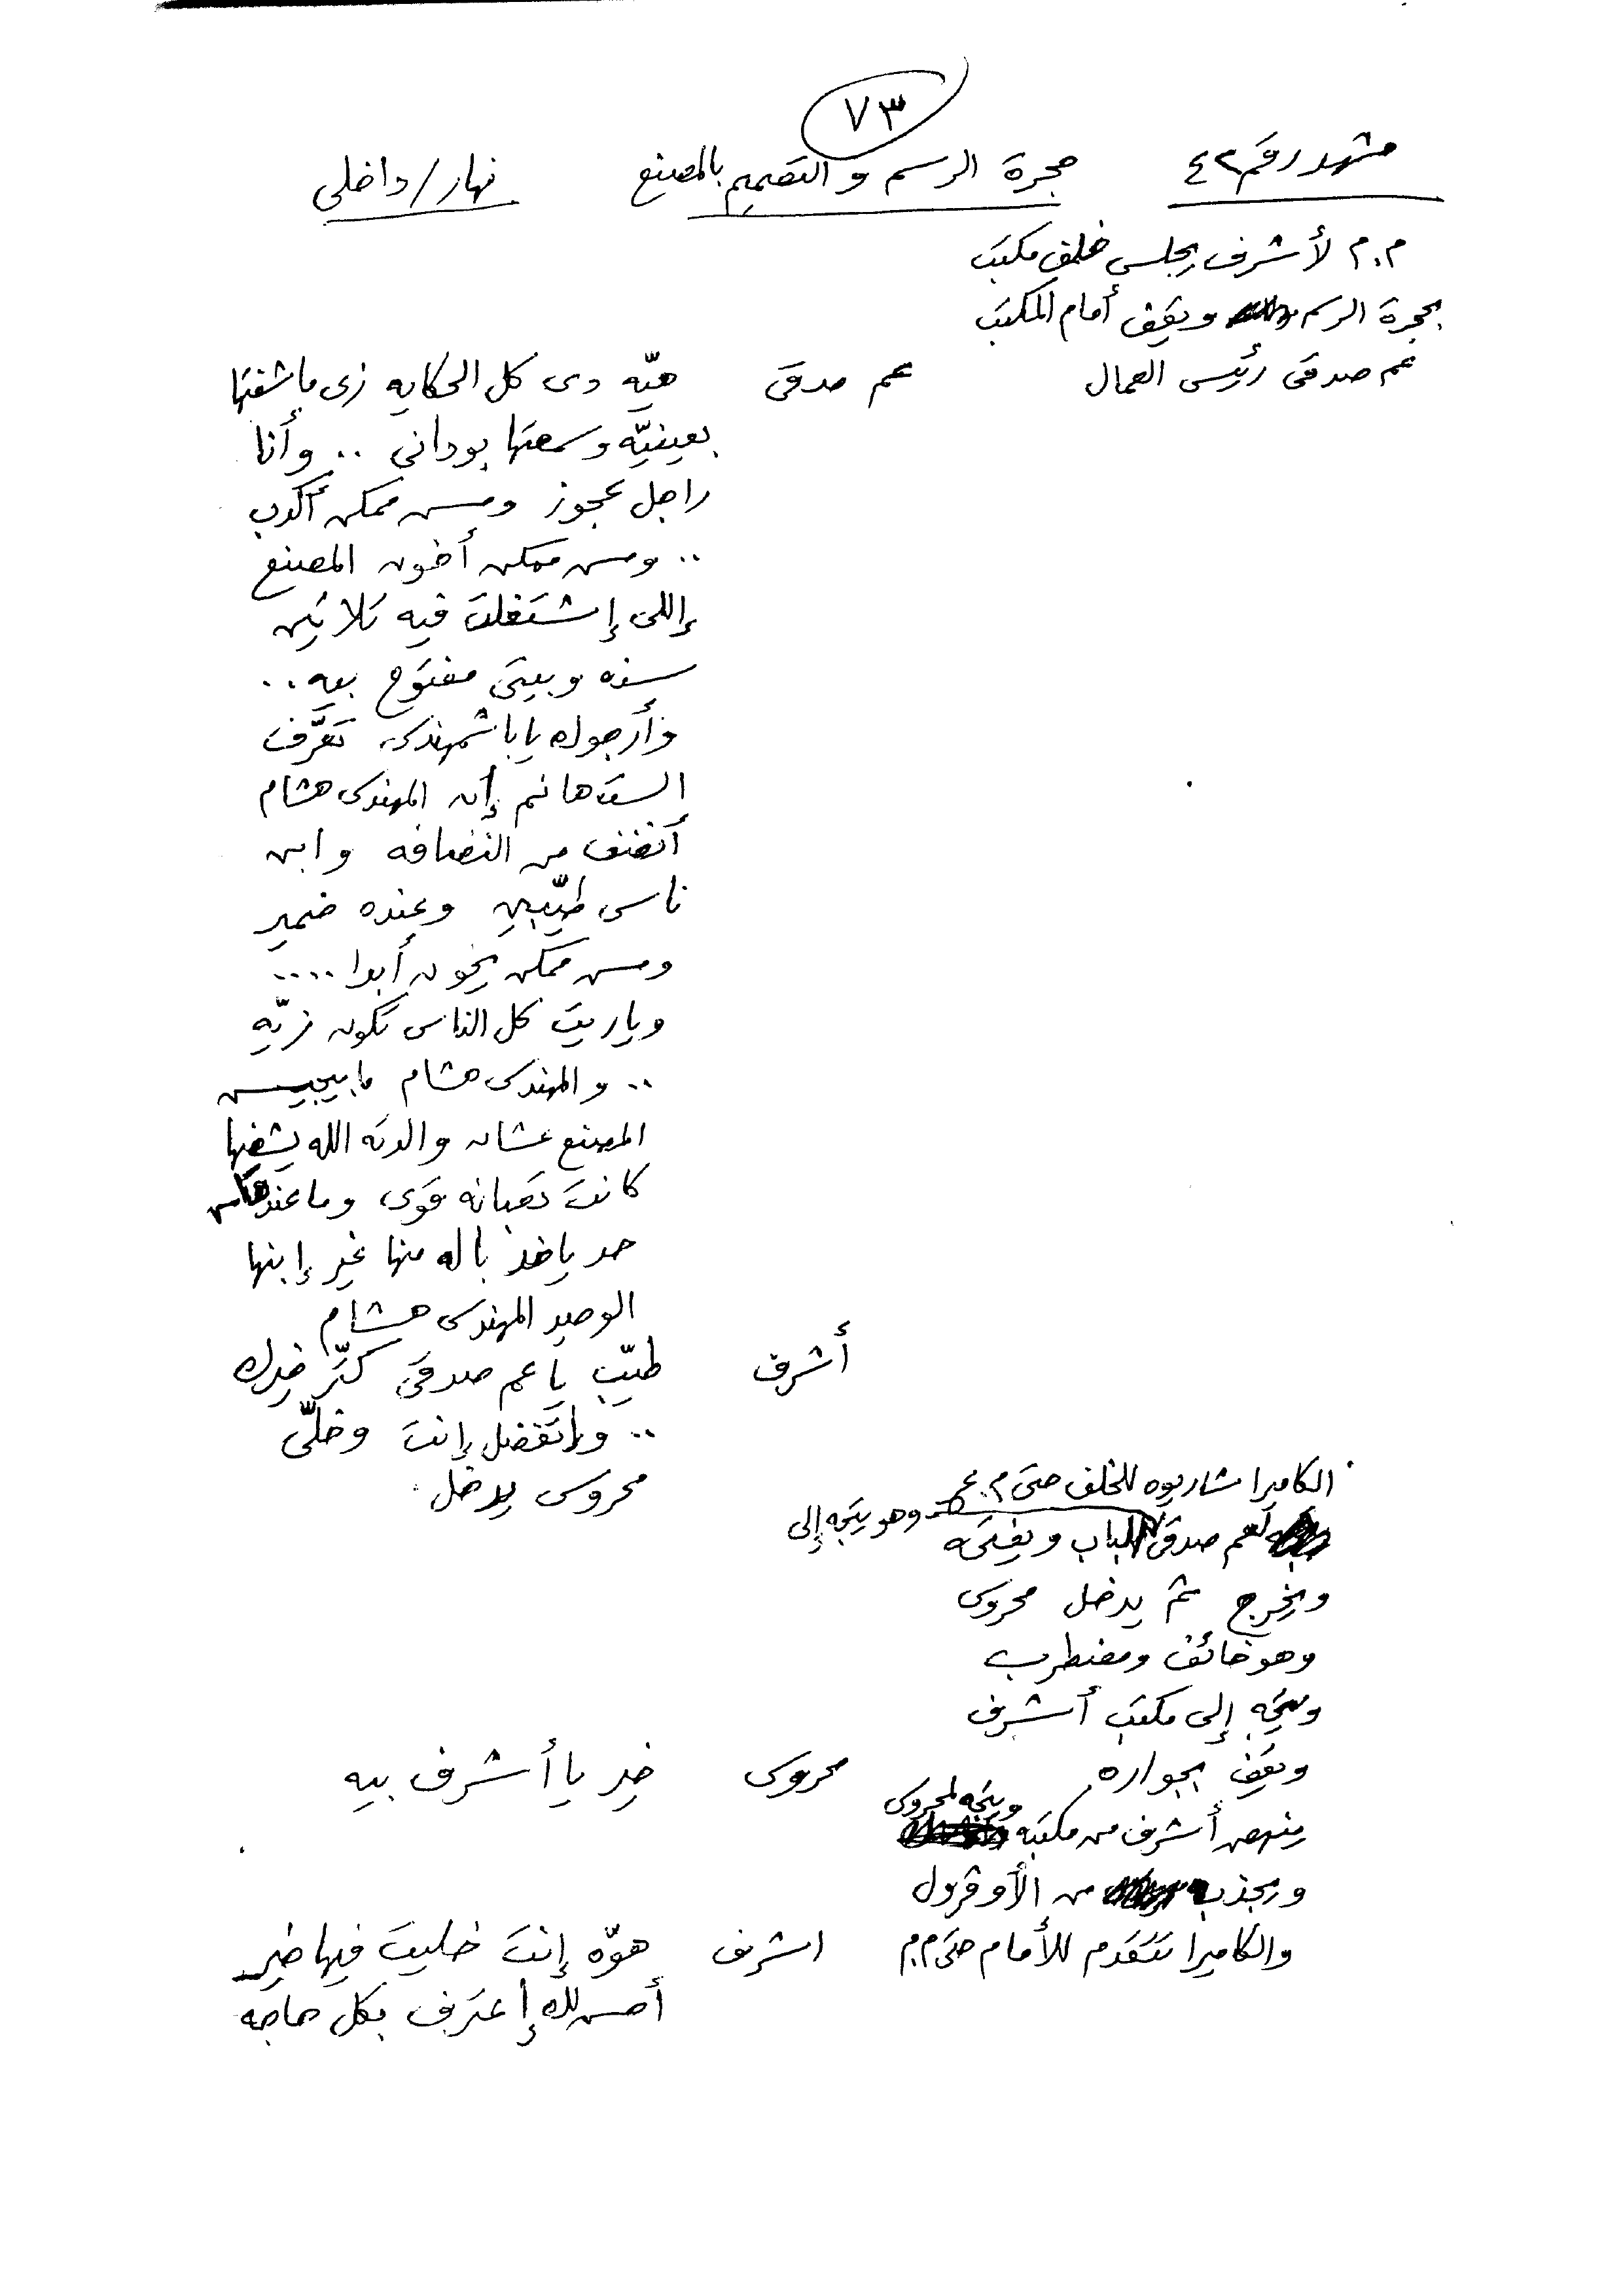 ٧٣
مشهد رقم ٤٢ حجرة الرسم والتصميم بالمصنع نهار/داخلى
م.م لأشرف يجلس خلف مكتب
بحجرة الرسم ويقف أمام المكتب
عم صدقى رئيس العمال
عم صدقى هيّه دى كل الحكايه زى ما شفتها
بعينيّه وسمعتها بودانى .. وأنا
راجل عجوز ومش ممكن أكدب
.. ومش ممكن أخون المصنع
إللى إشتغلت فيه تلاتين
سنه وبيتى مفتوح بيه ..
وأرجوك ياباشمهندس تعرَّف
الست هانم إن المهندس هشام
أنضف من النضافه وابن
ناس طيّبين وعنده ضمير
ومش ممكن يخون أبدا ....
وياريت كل الناس تكون زيّه
.. والمهندس هشام مابيجيش
المصنع عشان والدته الله يشفيها
كانت تعبانه قوى وماعندهاش
حد ياخد باله منها غير إبنها
الوحيد المهندس هشام
أشرف طيّب ياعم صدقى كتَّر خيرك
.. وإتفضل إنت وخلّى
محروس يدخل
الكاميرا شاريوه للخلف حتى م.ع
لعم صدقى وهو يتجه إلى الباب ويفتحه
ويخرج ثم يدخل محروس
وهو خائف ومضطرب
ويتجه إلى مكتب أشرف
ويقف بجواره
محروس خير يا أشرف بيه
ينهض أشرف من مكتبه ويتجه لمحروس
ويجذبه من الأوڤرول
والكاميرا تتقدم للأمام حتى م.م
اشرف هوّه إنت خليت فيها خير
أحسن لك إعترف بكل حاجه